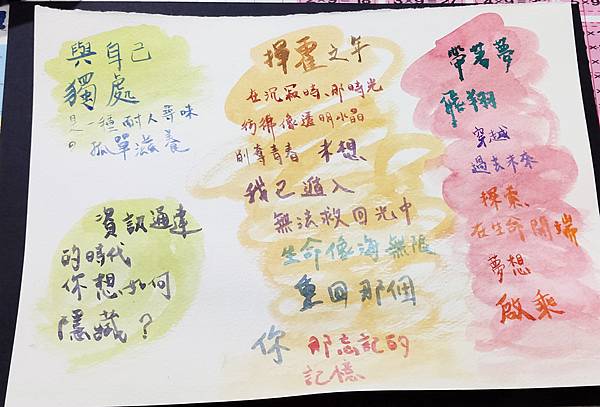 與自己
獨處
是一種耐人尋味
的孤單滋養
資訊通達
的時代
你想如何
隱藏？
揮霍之年
在沉寂時、那時光
彷彿像透明水晶
剝奪青春 未想、
我已遁入
無法救回光中
生命像海無限
重回那個
你 那忘記的
記憶
帶著夢
飛翔
穿越
過去未來
探索、
在生命開端
夢想
啟乘